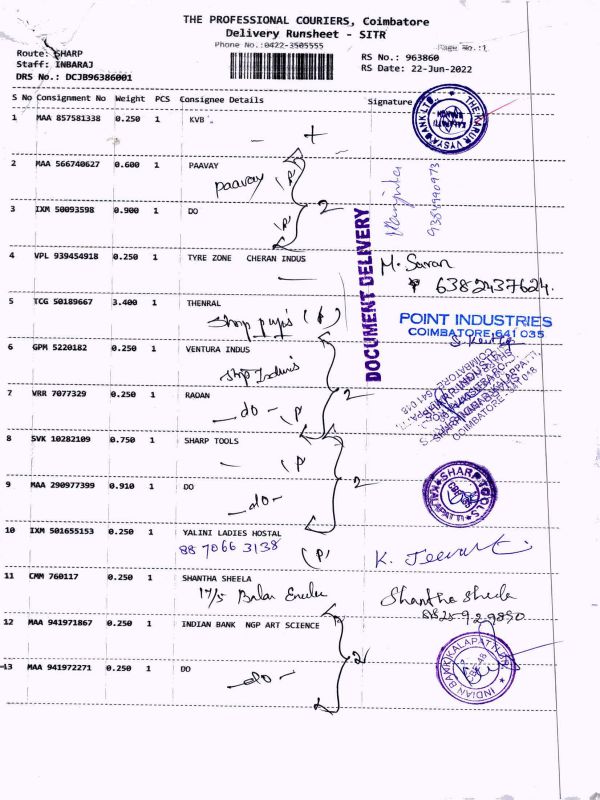 THE PROFESSIONAL COURIERS, Coimbatore
Delivery Runsheet - SITR
Phone No.:0422-3505555
Page No.:1
Route: SHARP
Staff: INBARAJ
DRS No.: DCJB96386001
RS No.: 963860
RS Date: 22-Jun-2022
S No Consignment No Weight PCS Consignee Details Signature
1 MAA 857581338 0.250 1 KVB
THE KARUR VYSYA BANK LTD.
2 MAA 566740627 0.600 1 PAAVAY
paavay (P)
3 IXM 50093598 0.900 1 DO
(P) 2
9384990973
DOCUMENT DELIVERY
4 VPL 939454918 0.250 1 TYRE ZONE CHERAN INDUS
M. Saran
6382437624.
5 TCG 50189667 3.400 1 THENRAL
POINT INDUSTRIES
COIMBATORE 641 035
6 GPM 5220182 0.250 1 VENTURA INDUS
7 VRR 7077329 0.250 1 RADAN
- do - (P) 2
8 SVK 10282109 0.750 1 SHARP TOOLS
(P)
SHARP TOOLS
KALAPATTI
9 MAA 290977399 0.910 1 DO
- do - 2
10 IXM 501655153 0.250 1 YALINI LADIES HOSTAL
88 7066 3138 (P)
K. Jeevart
11 CMM 760117 0.250 1 SHANTHA SHEELA
17/5
Shantha Sheela
12 MAA 941971867 0.250 1 INDIAN BANK NGP ART SCIENCE
INDIAN BANK
13 MAA 941972271 0.250 1 DO
- do - 2